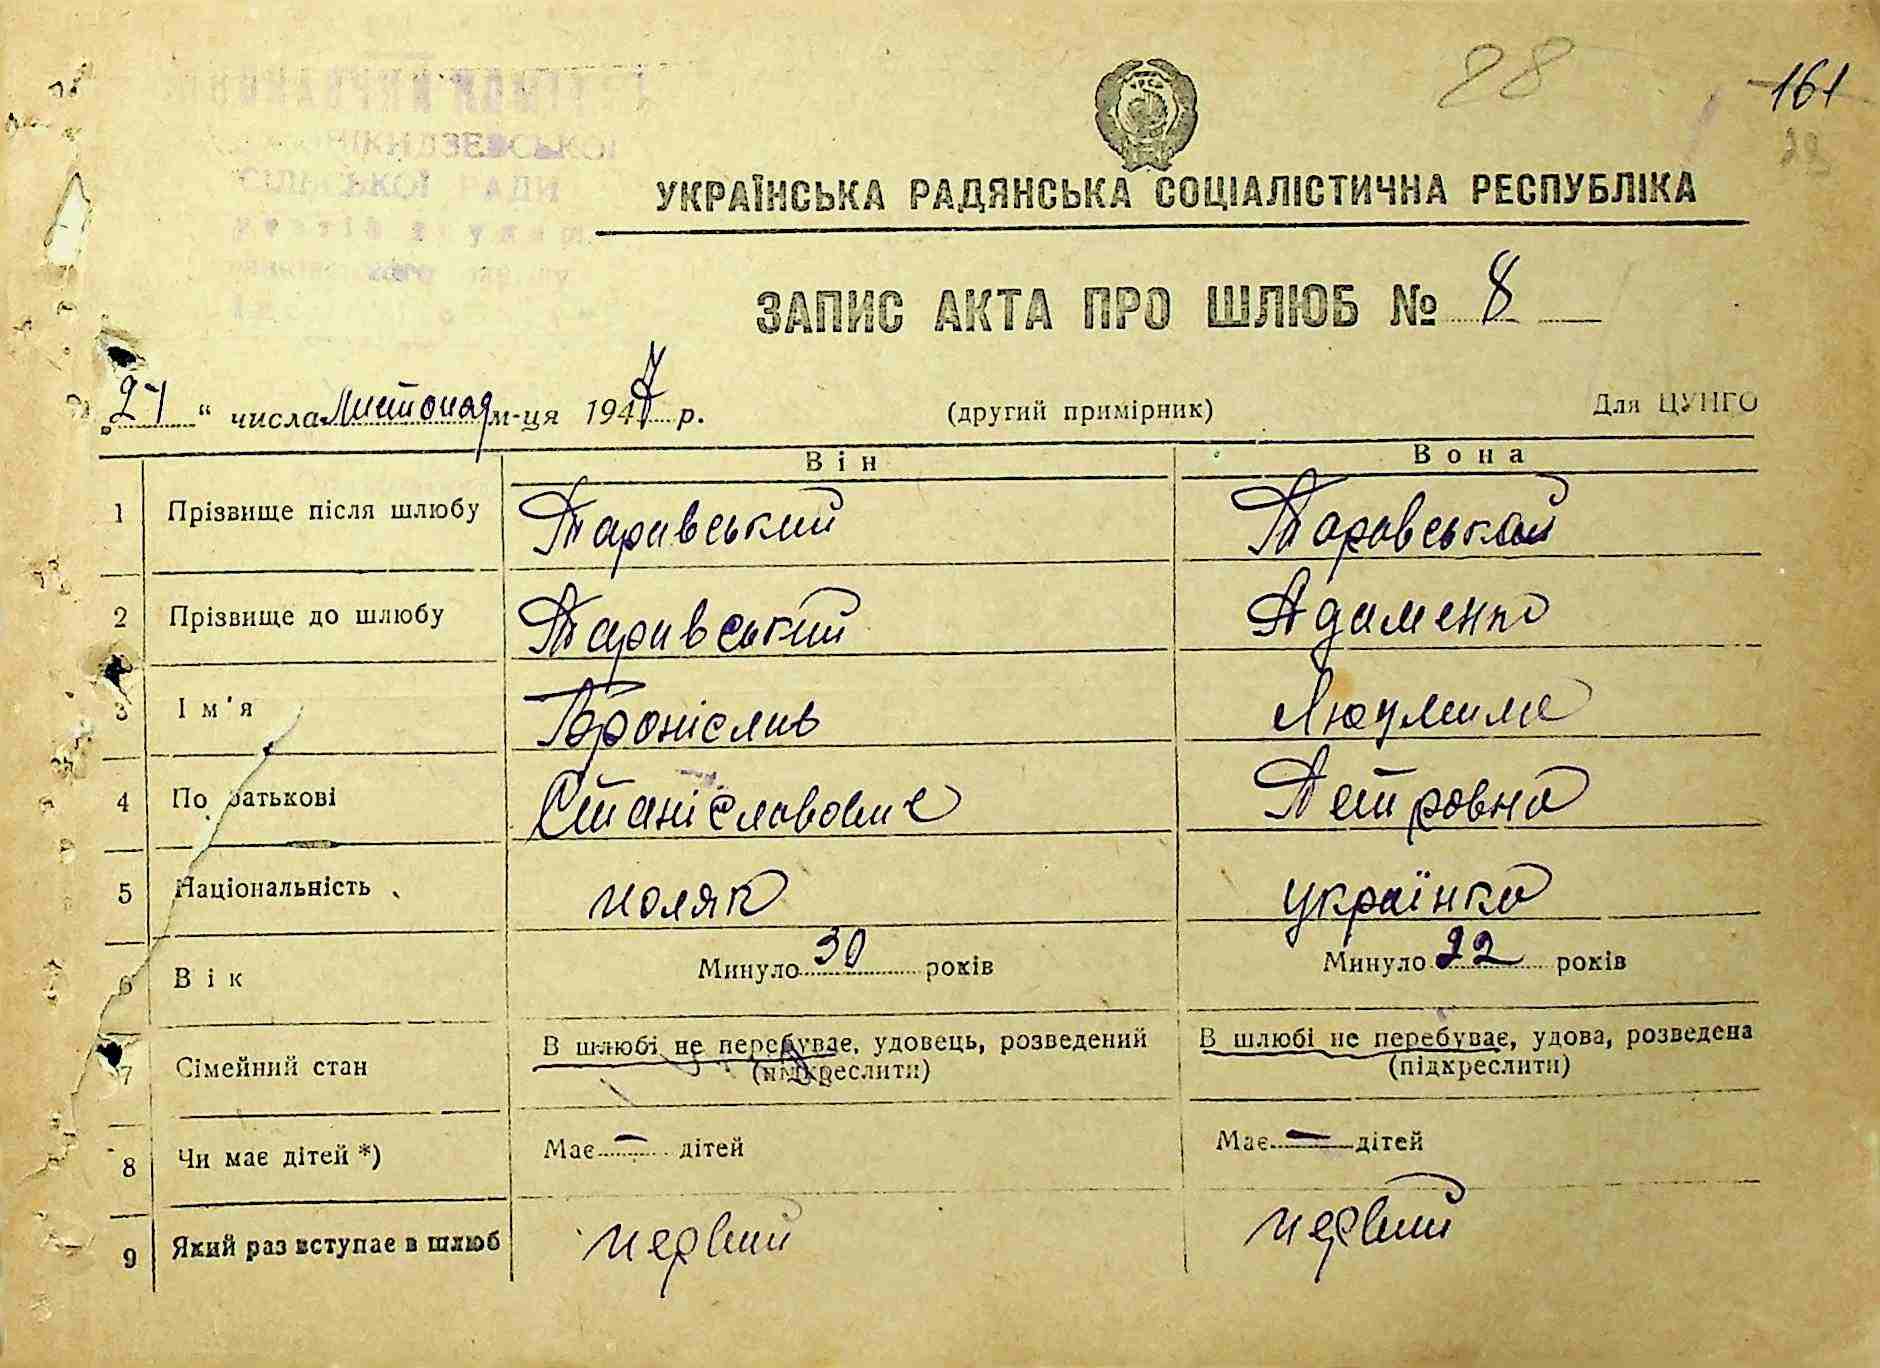 28
161
УКРАЇНСЬКА РАДЯНСЬКА СОЦІАЛІСТИЧНА РЕСПУБЛІКА
СІЛЬСЬКОЇ РАДИ
ЗАПИС АКТА ПРО ШЛЮБ № 8
„21“ числа Листопад м-ця 1947 р. (другий примірник) Для ЦУНГО
Він Вона
1 Прізвище після шлюбу Таравський Таравськая
2 Прізвище до шлюбу Таравський Адаменко
3 Ім'я Броніслав Людмила
4 По батькові Станіславович Петровна
5 Національність поляк українка
6 Вік Минуло 30 років Минуло 22 років
7 Сімейний стан В шлюбі не перебуває, удовець, розведений (підкреслити) В шлюбі не перебуває, удова, розведена (підкреслити)
8 Чи має дітей *) Має — дітей Має — дітей
9 Який раз вступає в шлюб первий первий